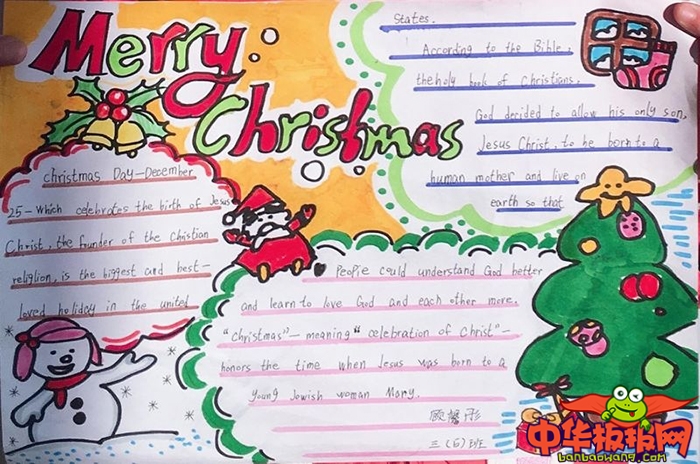 Merry
Christmas
christmas Day—December
25—Which celebrates the birth of Jesus
Christ, the funder of the Chistian
religion, is the biggest and best—
loved holiday in the united
States.
According to the Bible,
the holy book of Christians,
God decided to allow his only son,
Jesus Christ, to be born to a
human mother and live on
earth so that
People could understand God better
and learn to love God and each other more.
"christmas"—meaning "celebration of Christ"—
honors the time when Jesus was born to a
young Jewish woman Mary.
三(6)班
中华板报网
banbaowang.com